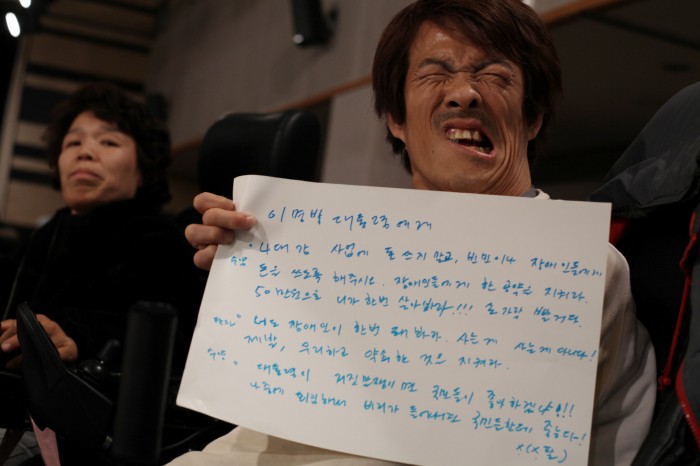 이명박 대통령에게
"4대강 사업에 돈 쓰지 말고, 빈민이나 장애인들에게
돈을 쓰도록 해주시오. 장애인들에게 한 공약을 지켜라.
50만원으로 니가 한번 살아봐라!!!
"너도 장애인이 한번 돼봐라. 사는게 사는게 아니다!
제발, 우리하고 약속한 것을 지켜라.
" 대통령이 거짓쟁이면 국민들이 좋아하겠냐!!!
나중에 퇴임해서 비리가 들어나면 국민들한테 죽는다~!